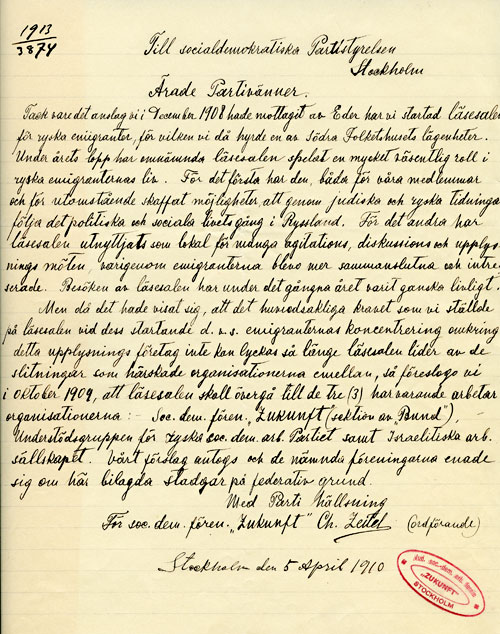 1913
3874
Till socialdemokratiska Partistyrelsen
Stockholm
Ärade Partivänner.
Tack vare det anslag vi i December 1908 hade mottagit av Eder har vi startad läsesalen
för ryska emigranter, för vilken vi då hyrde en av Södra Folketshusets lägenheter.
Under årets lopp har omnämnda läsesalen spelat en mycket väsentlig roll i
ryska emigranternas liv. För det första har den, båda för våra medlemmar
och för utomstående skaffat möjligheter, att genom judiska och ryska tidningar
följa det politiska och sociala livets gång i Ryssland. För det andra har
läsesalen utnyttjats som lokal för många agitations, diskussions och upplys-
nings möten, varigenom emigranterna blevo mer sammanslutna och intre-
serade. Besöken av läsesalen har under det gångna året varit ganska livligt.
Men då det hade visat sig, att det huvudsakliga kravet som vi ställde
på läsesalen vid dess startande d. v. s. emigranternas koncentrering omkring
detta upplysnings företag inte kan lyckas så länge läsesalen lider av de
slitningar som härskade organisationerna emellan, så föreslogo vi
i oktober 1909, att läsesalen skall övergå till de tre (3) härvarande arbetar
organisationerna: - Soc. dem. fören. "Zukunft" (sektion av "Bund"),
Understödsgruppen för ryska soc. dem. arb. Partiet samt Israelitiska arb.
sällskapet. Vårt förslag antogs och de nämnda föreningarna enade
sig om här bilagda stadgar på federativ grund.
Med Parti hällsning
För soc. dem. fören. "Zukunft" Ch. Zeitel (ordförande)
Stockholm den 5 April 1910
soc. dem. arb.
"ZUKUNFT"
STOCKHOLM